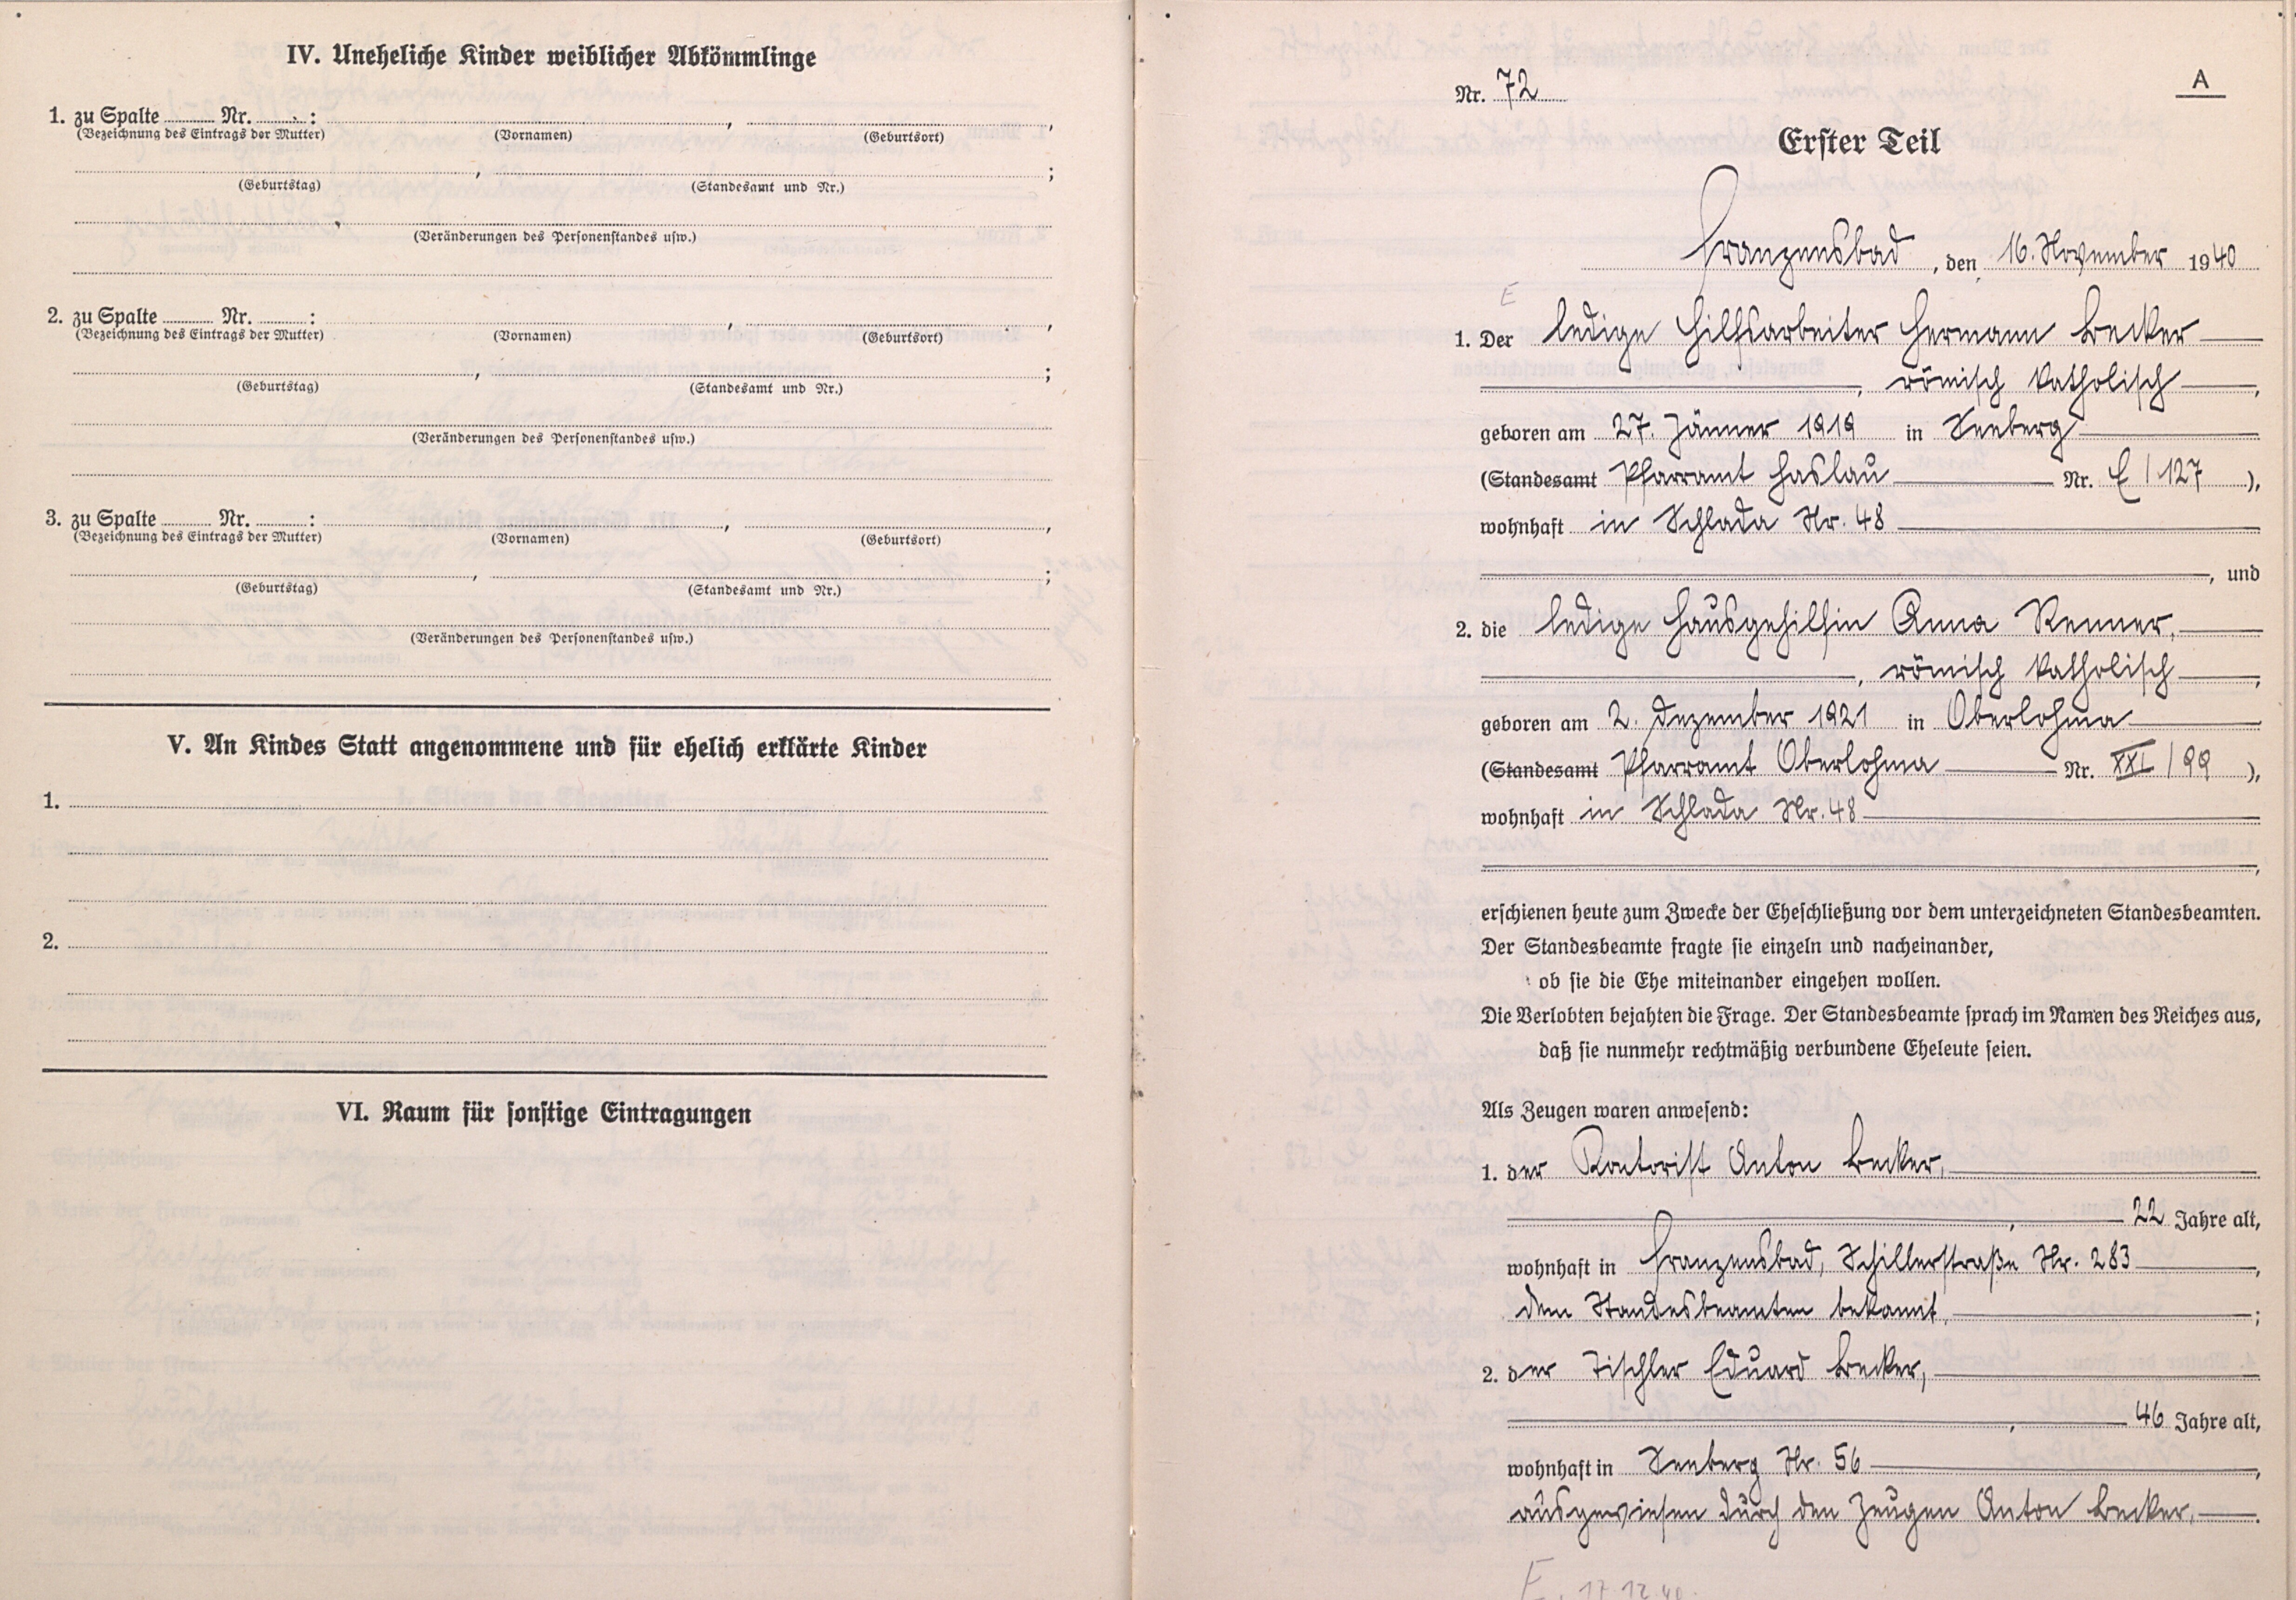 IV. Uneheliche Kinder weiblicher Abkömmlinge
1. zu Spalte ........ Nr. ........ : ........, ........,
(Bezeichnung des Eintrags der Mutter) (Vornamen) (Geburtsort)
........, ........;
(Geburtstag) (Standesamt und Nr.)
(Veränderungen des Personenstandes usw.)
2. zu Spalte ........ Nr. ........ : ........, ........,
(Bezeichnung des Eintrags der Mutter) (Vornamen) (Geburtsort)
........, ........;
(Geburtstag) (Standesamt und Nr.)
(Veränderungen des Personenstandes usw.)
3. zu Spalte ........ Nr. ........ : ........, ........,
(Bezeichnung des Eintrags der Mutter) (Vornamen) (Geburtsort)
........, ........;
(Geburtstag) (Standesamt und Nr.)
(Veränderungen des Personenstandes usw.)
V. An Kindes Statt angenommene und für ehelich erklärte Kinder
1.
2.
VI. Raum für sonstige Eintragungen
A
Nr. 72
Erster Teil
Franzensbad, den 16. November 1940
E
1. Der ledige Hilfsarbeiter Hermann Becker
, römisch katholisch,
geboren am 27. Jänner 1919 in Seeberg
(Standesamt Pfarramt Haslau Nr. E/127),
wohnhaft in Schlada Nr. 48
, und
2. die ledige Hausgehilfin Anna Renner,
, römisch katholisch,
geboren am 2. Dezember 1921 in Oberlohma
(Standesamt Pfarramt Oberlohma Nr. XXI/99),
wohnhaft in Schlada Nr. 48
,
erschienen heute zum Zwecke der Eheschließung vor dem unterzeichneten Standesbeamten.
Der Standesbeamte fragte sie einzeln und nacheinander,
ob sie die Ehe miteinander eingehen wollen.
Die Verlobten bejahten die Frage. Der Standesbeamte sprach im Namen des Reiches aus,
daß sie nunmehr rechtmäßig verbundene Eheleute seien.
Als Zeugen waren anwesend:
1. der Kontorist Anton Becker,
, 22 Jahre alt,
wohnhaft in Franzensbad, Schillerstraße Nr. 283,
dem Standesbeamten bekannt,;
2. der Tischler Eduard Becker,
, 46 Jahre alt,
wohnhaft in Seeberg Nr. 56,
ausgewiesen durch den Zeugen Anton Becker,.
E. 17.12.40.